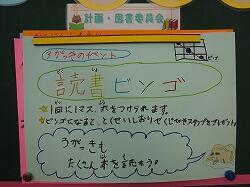 計画・図書委員会
3がっきのイベント
どく しょ
読書ビンゴ
☆1日に1マス、丸をつけられます。
☆ビンゴになると、とくせいしおりでくじびきスタンプをプレゼント!
3がっきも
たくさん本を読もう。